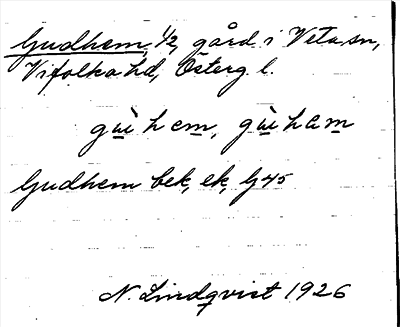 Gudhem, 1/2, gård i Veta sn,
Vifolka hd, Österg. l.
gùhem, gùham
Gudhem bek, ek, G45
N. Lindqvist 1926